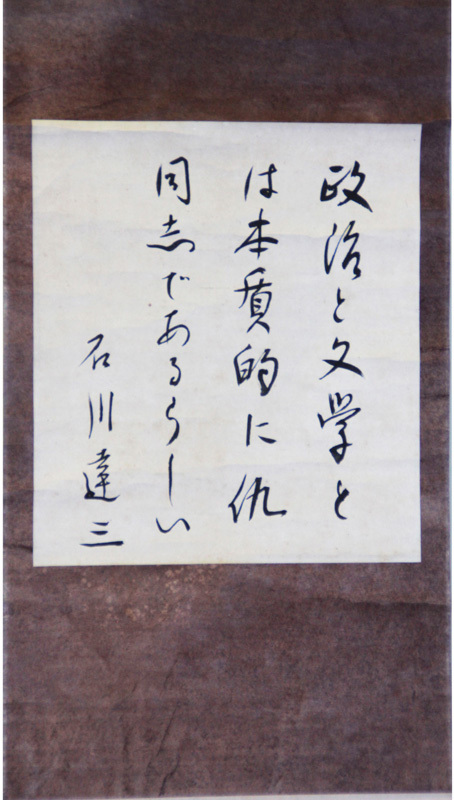 政治と文学と
は本質的に仇
同志であるらしい
石川達三